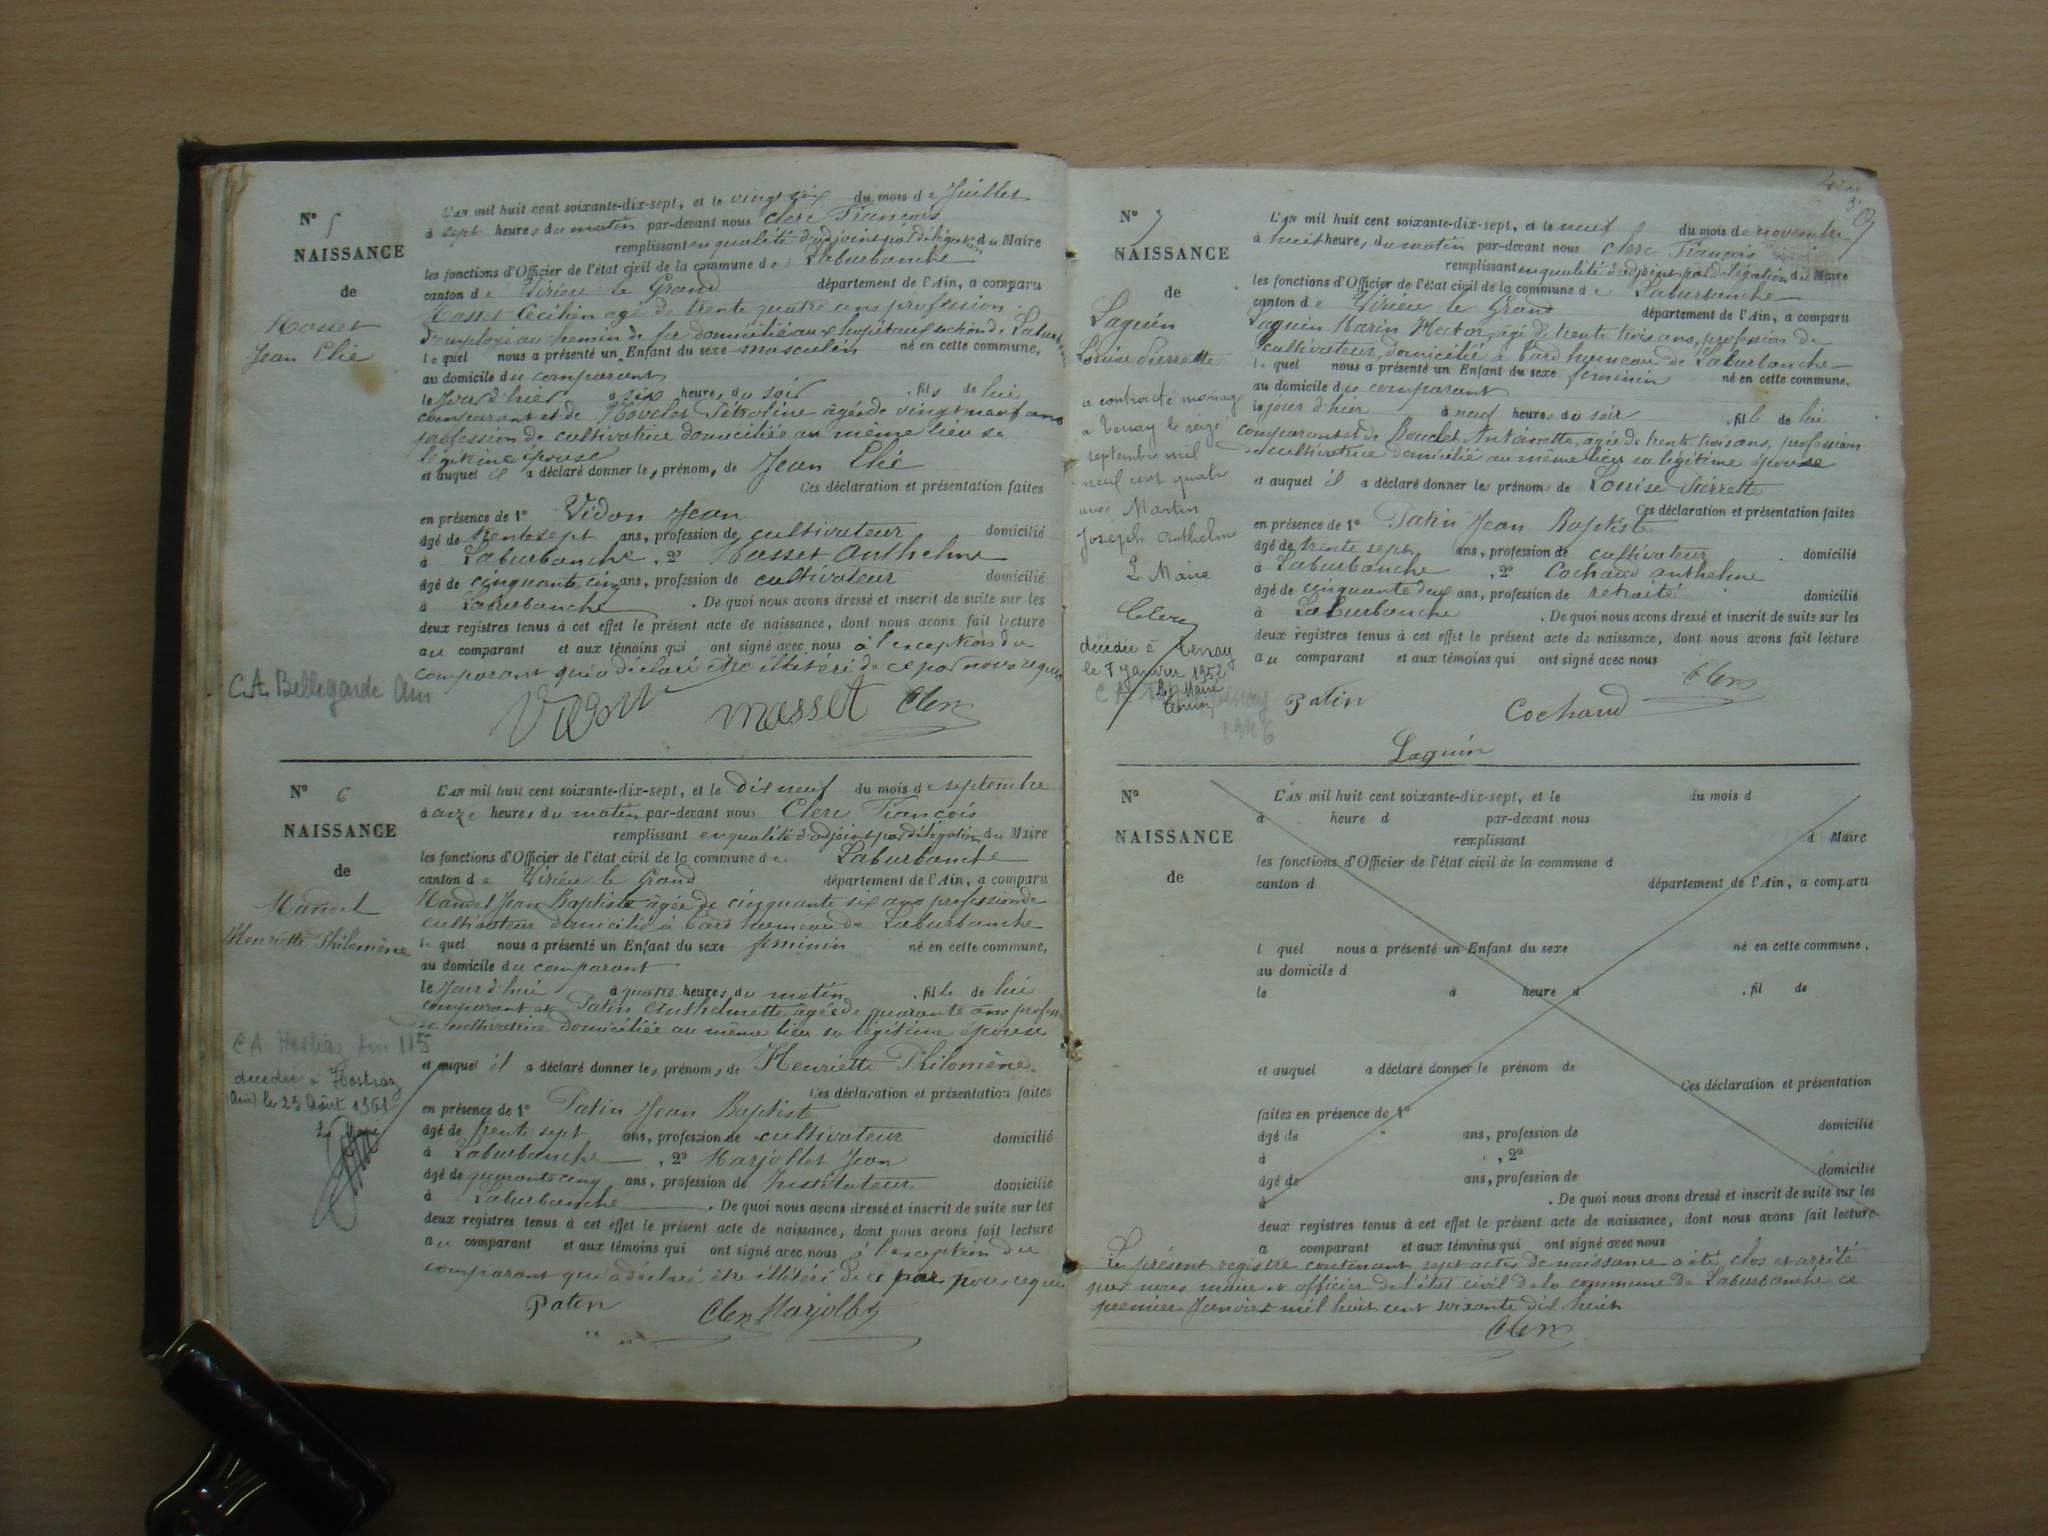 N° 5
NAISSANCE
de
Masset
Jean Elie
L'AN mil huit cent soixante-dix-sept, et le vingt six du mois de Juillet
à sept heures du matin par-devant nous Clerc François
remplissant en qualité d'adjoint par délégation du Maire
les fonctions d'Officier de l'état civil de la commune de Laburbanche
canton de Virieu le Grand département de l'Ain, a comparu
Masset Cécilien agé de trente quatre ans profession
d'employé au chemin de fer domicilié aux hopitaux
lequel nous a présenté un Enfant du sexe masculin né en cette commune,
au domicile du comparant
le jour d'hier à six heures du soir, fils de lui
comparant et de agée de vingt neuf ans
profession de cultivatrice domiciliée au même lieu sa
légitime épouse
et auquel il a déclaré donner les prénoms de Jean Elie
Ces déclaration et présentation faites
en présence de 1° Vidon Jean
âgé de trente sept ans, profession de cultivateur domicilié
à Laburbanche, 2° Masset Anthelme
âgé de cinquante cinq ans, profession de cultivateur domicilié
à Laburbanche. De quoi nous avons dressé et inscrit de suite sur les
deux registres tenus à cet effet le présent acte de naissance, dont nous avons fait lecture
au comparant et aux témoins qui ont signé avec nous à l'exception du
comparant qui a déclaré être illitéré de ce par nous requis
C.A. Bellegarde Ain
Vidon masset Clerc
N° 6
NAISSANCE
de
Mandel
Henriette Philomène
C A Hostiaz Ain 115
décédée à Hostiaz
(Ain) le 23 Août 1961
Le Maire
L'AN mil huit cent soixante-dix-sept, et le dix neuf du mois de septembre
à onze heures du matin par-devant nous Clerc François
remplissant en qualité d'adjoint par délégation du Maire
les fonctions d'Officier de l'état civil de la commune de Laburbanche
canton de Virieu le Grand département de l'Ain, a comparu
Mandel Jean Baptiste agée de cinquante six ans profession de
cultivateur domicilié à Bard hameau de Laburbanche
lequel nous a présenté un Enfant du sexe feminin né en cette commune,
au domicile du comparant
le jour d'hui à quatre heures du matin, fille de lui
comparant et Patin Anthelmette agée de quarante ans profession
de cultivatrice domiciliée au même lieu sa légitime épouse
et auquel il a déclaré donner les prénoms de Henriette Philomène.
Ces déclaration et présentation faites
en présence de 1° Patin Jean Baptiste
âgé de trente sept ans, profession de cultivateur domicilié
à Laburbanche, 2° Marjollet Jean
âgé de quarante cinq ans, profession de Instituteur domicilié
à Laburbanche. De quoi nous avons dressé et inscrit de suite sur les
deux registres tenus à cet effet le présent acte de naissance, dont nous avons fait lecture
au comparant et aux témoins qui ont signé avec nous à l'exception du
comparant qui a déclaré être illitéré de ce par nous requis
Patin Clerc Marjollet
N° 7
NAISSANCE
de
Laguin
Louise Pierrette
a contracté mariage
a Tenay le seize
septembre mil
neuf cent quatre
avec Martin
Joseph Anthelme
L Maire
Clerc
décédée à Tenay
le 7 Janvier 1952
Le Maire
L'AN mil huit cent soixante-dix-sept, et le neuf du mois de novembre
à huit heures du matin par-devant nous Clerc François
remplissant en qualité d'adjoint par délégation du Maire
les fonctions d'Officier de l'état civil de la commune de Laburbanche
canton de Virieu le Grand département de l'Ain, a comparu
Laguin Marin Hector, âgé de trente trois ans, profession de
cultivateur, domicilié à Bard hameau de Laburbanche
lequel nous a présenté un Enfant du sexe féminin né en cette commune,
au domicile du comparant
le jour d'hier à neuf heures du soir, fille de lui
comparant et de Bouclet Antoinette, agée de trente trois ans, profession
de cultivatrice domicilié au même lieu sa légitime épouse
et auquel il a déclaré donner les prénoms de Louise Pierrette
Ces déclaration et présentation faites
en présence de 1° Patin Jean Baptiste
âgé de trente sept ans, profession de cultivateur domicilié
à Laburbanche, 2° Cochaud anthelme
âgé de cinquante deux ans, profession de retraité domicilié
à Laburbanche. De quoi nous avons dressé et inscrit de suite sur les
deux registres tenus à cet effet le présent acte de naissance, dont nous avons fait lecture
au comparant et aux témoins qui ont signé avec nous
Clerc
Patin Cochaud
Laguin
N°
NAISSANCE
de
L'AN mil huit cent soixante-dix-sept, et le du mois d
à heure d par-devant nous
remplissant d Maire
les fonctions d'Officier de l'état civil de la commune d
canton d département de l'Ain, a comparu
l quel nous a présenté un Enfant du sexe né en cette commune,
au domicile d
le à heure d, fil de
et auquel a déclaré donner le prénom de
Ces déclaration et présentation
faites en présence de 1°
âgé de ans, profession de domicilié
à, 2°
âgé de ans, profession de domicilié
à. De quoi nous avons dressé et inscrit de suite sur les
deux registres tenus à cet effet le présent acte de naissance, dont nous avons fait lecture
a comparant et aux témoins qui ont signé avec nous
Le présent registre contenant sept actes de naissance a été clos et arrêté
par nous maire et officier de l'état civil de la commune de Laburbanche ce
premier Janvier mil huit cent soixante dix huit
Clerc